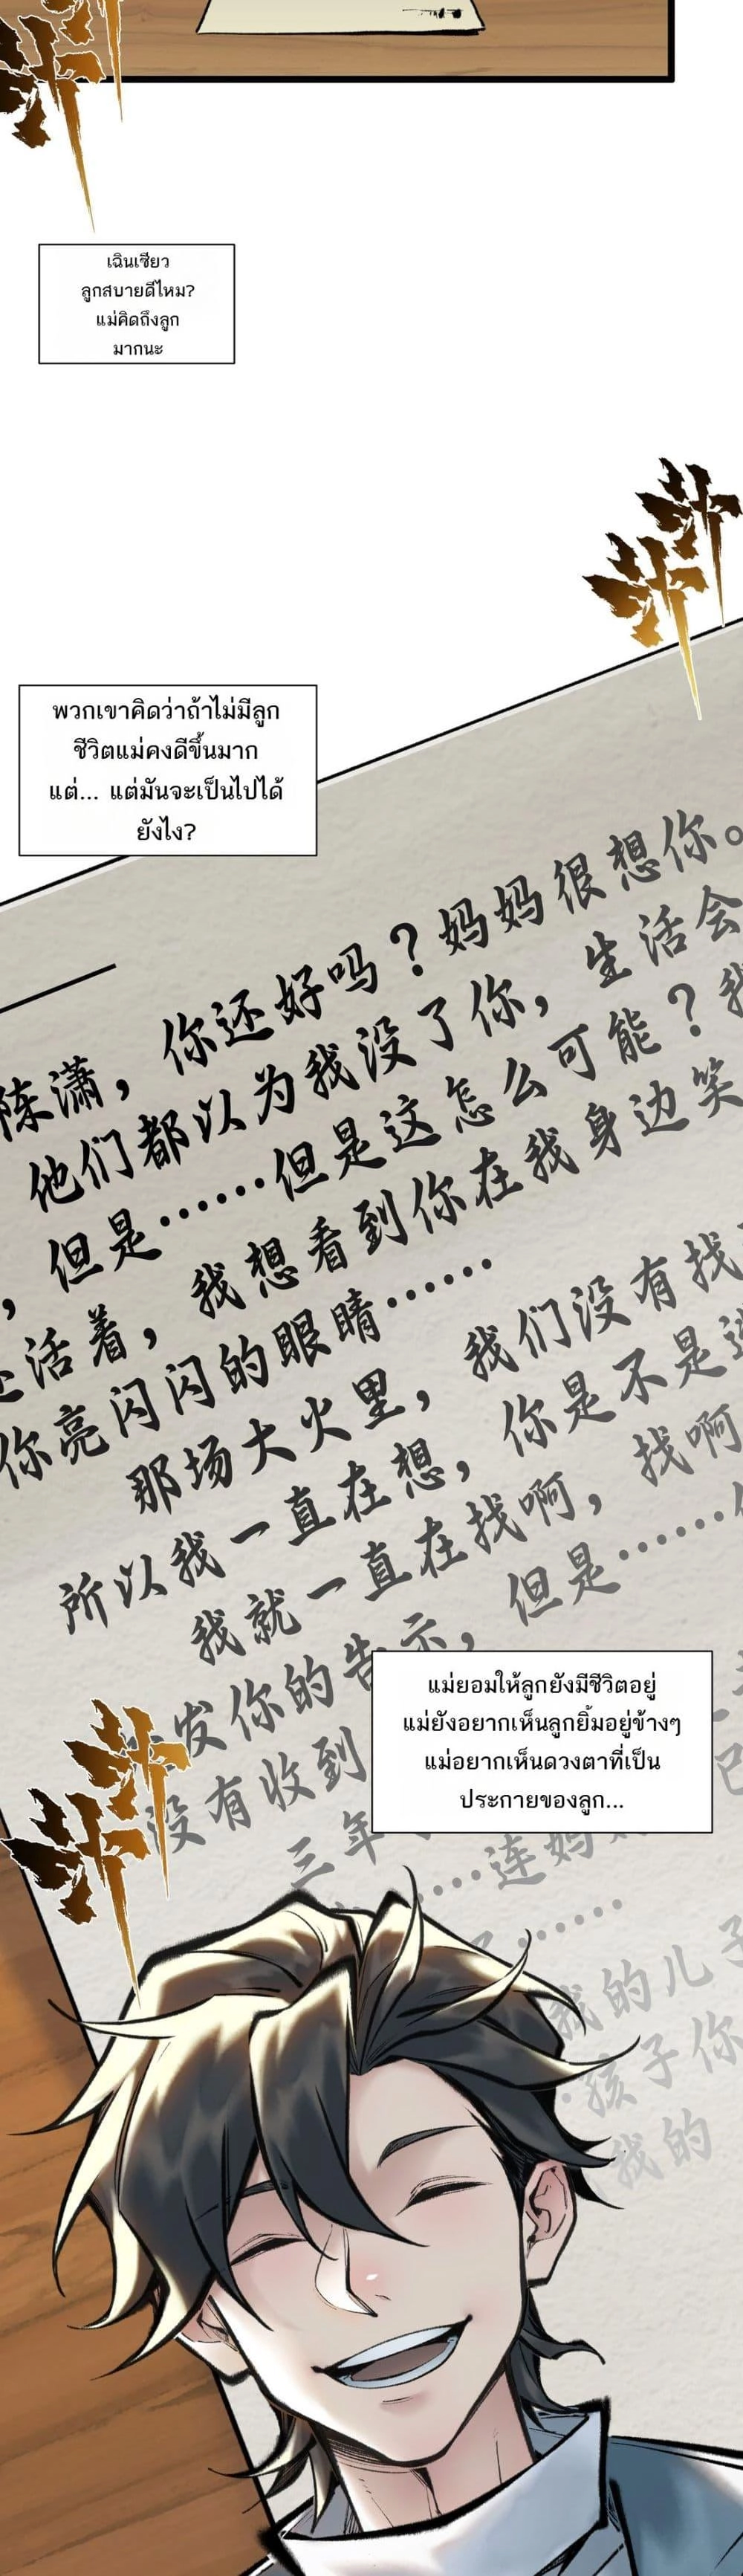 เฉินเซียว
ลูกสบายดีไหม?
แม่คิดถึงลูก
มากนะ
沙
沙
พวกเขาคิดว่าถ้าไม่มีลูก
ชีวิตแม่คงดีขึ้นมาก
แต่... แต่มันจะเป็นไปได้
ยังไง?
陈潇，你还好吗？妈妈很想你。
他们都以为我没了你，生活会
，但是……但是这怎么可能？我
活着，我想看到你在我身边笑
你亮闪闪的眼睛……
那场大火里，我们没有找
所以我一直在想，你是不是
我就一直在找啊，找啊
发你的告示，但是……
没有收到
三年
……连妈
……
我的儿子
孩子你
我的
แม่ยอมให้ลูกยังมีชีวิตอยู่
แม่ยังอยากเห็นลูกยิ้มอยู่ข้างๆ
แม่อยากเห็นดวงตาที่เป็น
ประกายของลูก...